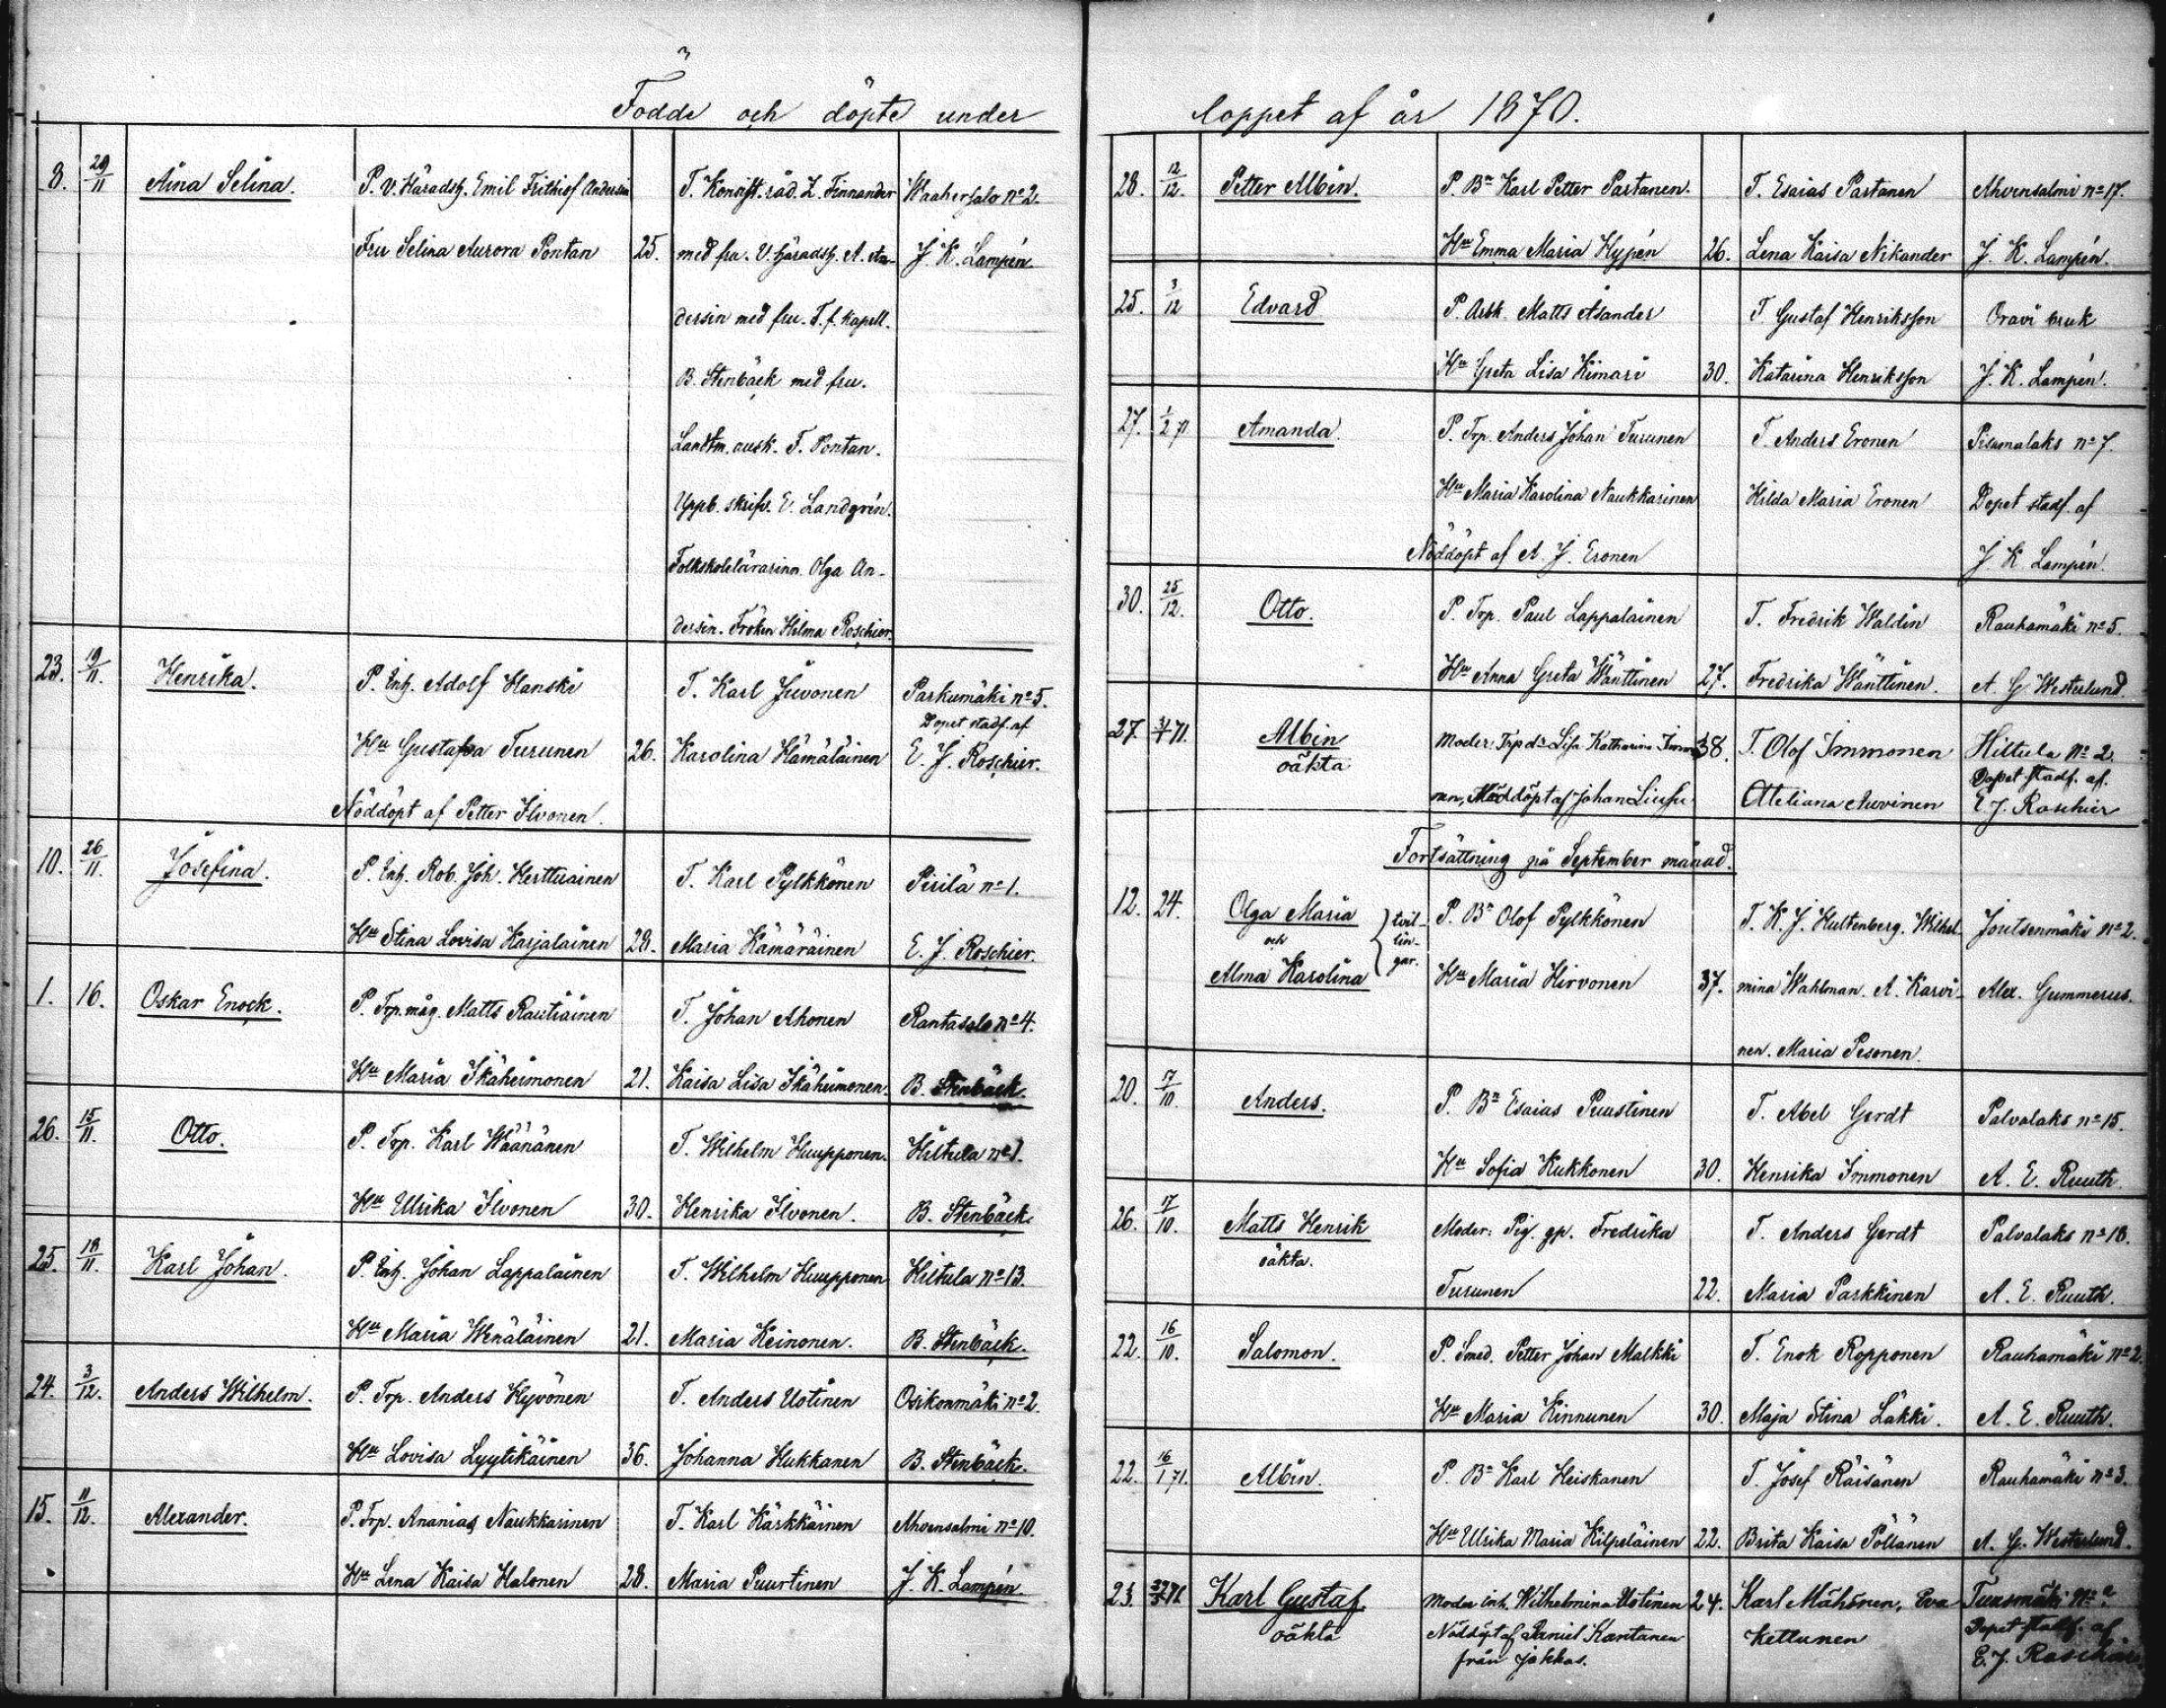 Födde och döpte under
8. 29/11 Aina Selina. P. V. Häradsh. Emil Frithiof Andersin T. Konsist. råd. Z. Finnander Waahersalo no 2.
Fru Selina Aurora Pontan 25. med fru. V. häradsh. A. An- J. K. Lampén.
dersin med fru. T. f. Kapell.
B. Stenbäck med fru.
Landtm. ausk. F. Pontan.
Uppb. skrifv. E. Landgrén.
Folkskolelärarinn. Olga An-
dersin. Fröken Hilma Roschier.
23. 19/11. Henrika. P. Inh. Adolf Hanski T. Karl Juvonen Parkumäki no 5.
Dopet stadf. af
Hu Gustafva Turunen 26. Karolina Hämäläinen E. J. Roschier.
Nöddöpt af Petter Ilvonen.
10. 26/11. Josefina. P. Inh. Rob. Joh. Herttuainen T. Karl Pylkkönen Pirilä no 1.
Hu Stina Lovisa Karjalainen 28. Maria Kämäräinen E. J. Roschier.
1. 16. Oskar Enock. P. Trp. måg. Matts Rautiainen T. Johan Ahonen Rantasalo no 4.
Hu Maria Ikäheimonen 21. Kaisa Lisa Ikäheimonen. B. Stenbäck.
26. 15/11. Otto. P. Trp. Karl Wäänänen T. Wilhelm Huupponen. Hiltula no 1.
Hu Ulrika Ilvonen 30. Henrika Ilvonen. B. Stenbäck.
25. 18/11. Karl Johan. P. Inh. Johan Lappalainen T. Wilhelm Huupponen Hiltula no 13.
Hu Maria Wenäläinen 21. Maria Keinonen. B. Stenbäck.
24. 3/12. Anders Wilhelm. P. Trp. Anders Hyvönen T. Anders Uotinen Osikonmäki no 2.
Hu Lovisa Lyytikäinen 36. Johanna Hukkanen B. Stenbäck.
15. 11/12. Alexander. P. Trp. Ananias Naukkarinen T. Karl Kärkkäinen Ahvensalmi no 10.
Hu Lena Kaisa Halonen 28. Maria Puurtinen J. K. Lampén.
loppet af år 1870.
28. 12/12. Petter Albin. P. Bn Karl Petter Partanen. T. Esaias Partanen Ahvensalmi no 17.
Hu Emma Maria Hypén 26. Lena Kaisa Nikander J. K. Lampén.
25. 3/12 Edvard P. Arbk. Matts Åsander T Gustaf Henriksson Oravi bruk
Hu Greta Lisa Kimari 30. Katarina Henriksson J. K. Lampén.
27. 1/2 71 Amanda. P. Trp. Anders Johan Turunen T. Anders Eronen Pisamalaks no 7.
Hu Maria Karolina Naukkarinen Hilda Maria Eronen Dopet stadf. af
Nöddöpt af A. J. Eronen J. K. Lampén.
30. 25/12. Otto. P. Trp. Paul Lappalainen T. Fredrik Waldin Rauhamäki no 5.
Hu Anna Greta Wänttinen 27. Fredrika Wänttinen. A. G. Westerlund
27. 3/1 71. Albin Moder: Trp dr Lisa Katharina Immo 38. T. Olof Immonen Hiltula No 2.
oäkta Dopet stadf. af.
nen, Nöddöpt af Johan Liusu Atteliana Auvinen E. J. Roschier
Fortsättning på September månad.
12. 24. Olga Maria tvil- P. Bn Olof Pylkkönen T. K. J. Hultenberg. Wilhel- Joutsenmäki no 2.
och lin-
Alma Karolina gar. Hu Maria Hirvonen 37. mina Wahlman. A. Karvi- Alex. Gummerus.
nen. Maria Pesonen.
20. 17/10. Anders. P. Bn Esaias Puustinen T. Abel Gerdt Palvalaks no 15.
Hu Sofia Kukkonen 30. Henrika Immonen A. E. Ruuth.
26. 17/10. Matts Henrik Moder: Pig. gp. Fredrika T. Anders Gerdt Palvalaks no 18.
oäkta.
Turunen 22. Maria Parkkinen A. E. Ruuth.
22. 16/10. Salomon. P. Smed. Petter Johan Malkki T. Enok Ropponen Rauhamäki no 2.
Hu Maria Kinnunen 30. Maja Stina Läkki. A. E. Ruuth.
22. 16/1 71. Albin. P. Bn Karl Heiskanen T. Josef Räisänen Rauhamäki no 3.
Hu Ulrika Maria Kilpeläinen 22. Brita Kaisa Pöllänen A. G. Westerlund.
23. Karl Gustaf Moder inh. Wilhelmina Uotinen 24. Karl Mähönen, Eva Tuusmäki No 2.
oäkta Nöddöpt af Daniel Kantanen Kettunen Dopet stadf. af
från Jokkas. E. J. Roschier